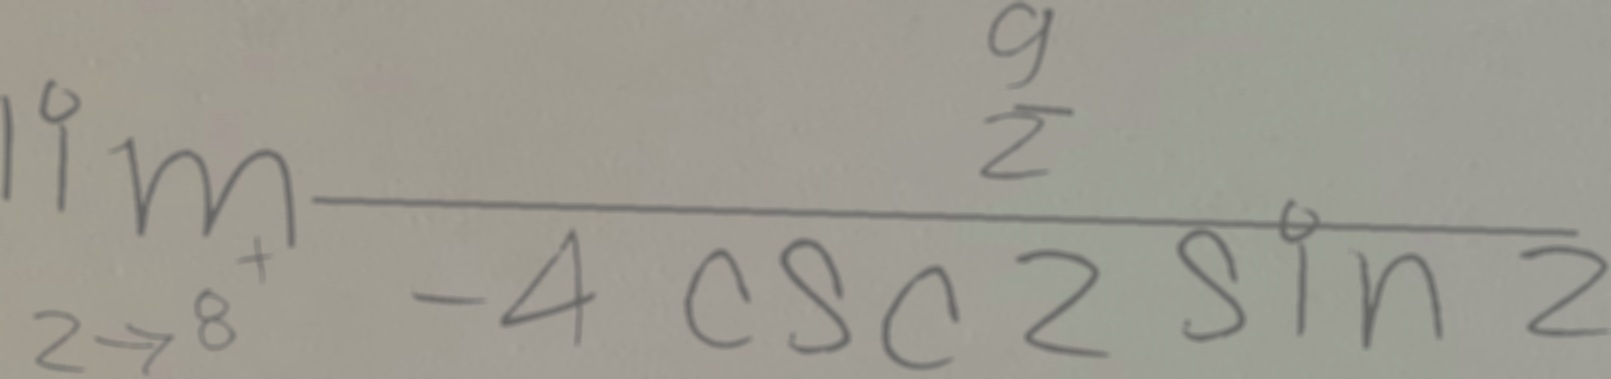 \lim_{z \to 8^+} \frac{\frac{9}{z}}{-4 \csc z \sin z}